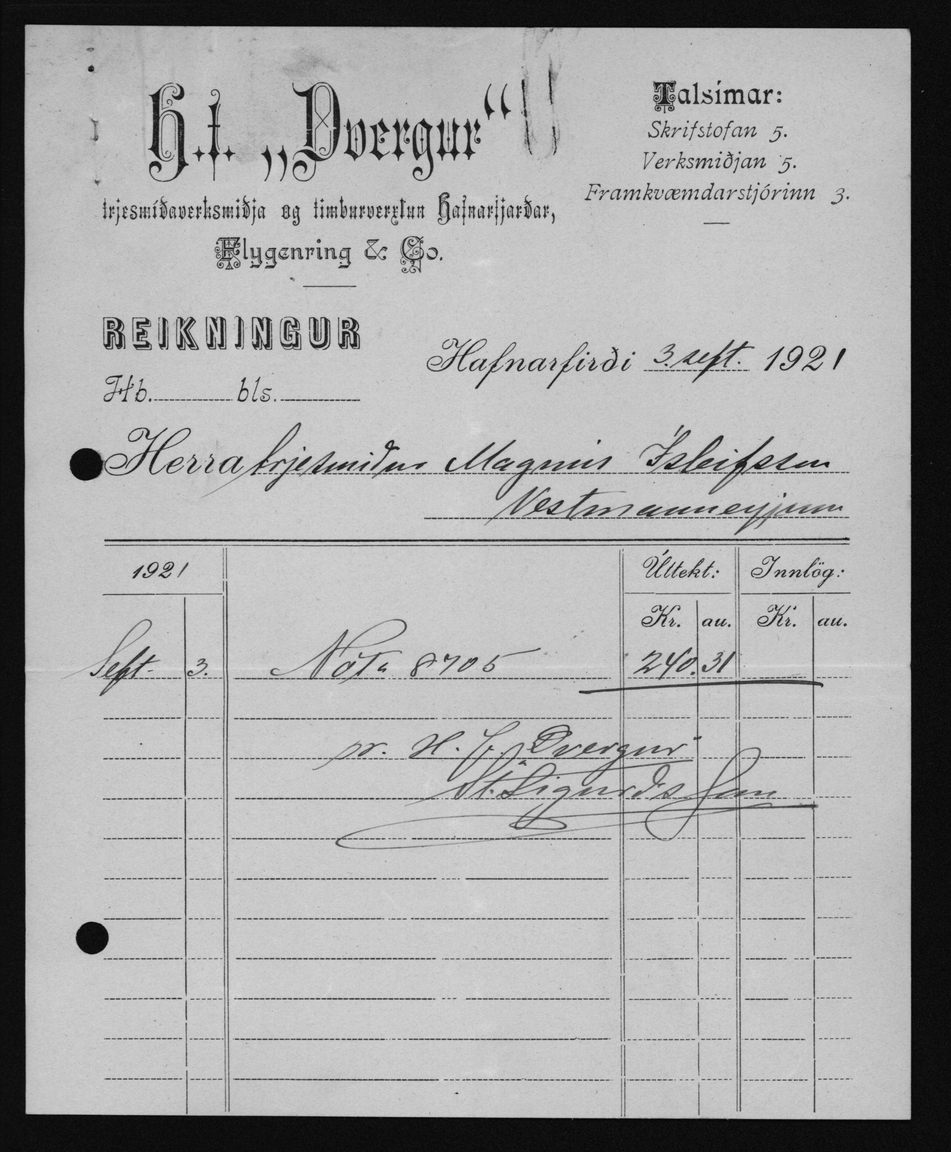 H.f. „Dvergur“
trjesmíðaverksmiðja og timburverzlun Hafnarfjarðar,
Flygenring & Co.
Talsímar:
Skrifstofan 5.
Verksmiðjan 5.
Framkvæmdarstjórinn 3.
REIKNINGUR
Hafnarfirði 3. sept. 1921
Hb. bls.
Herra trjesmiður Magnús Ísleifsson
Vestmannaeyjum
1921 Úttekt: Innlög:
Kr. au. Kr. au.
Sept. 3. Nóta 8705 240.31
pr. H.f. "Dvergur"
St. Sigurðsson